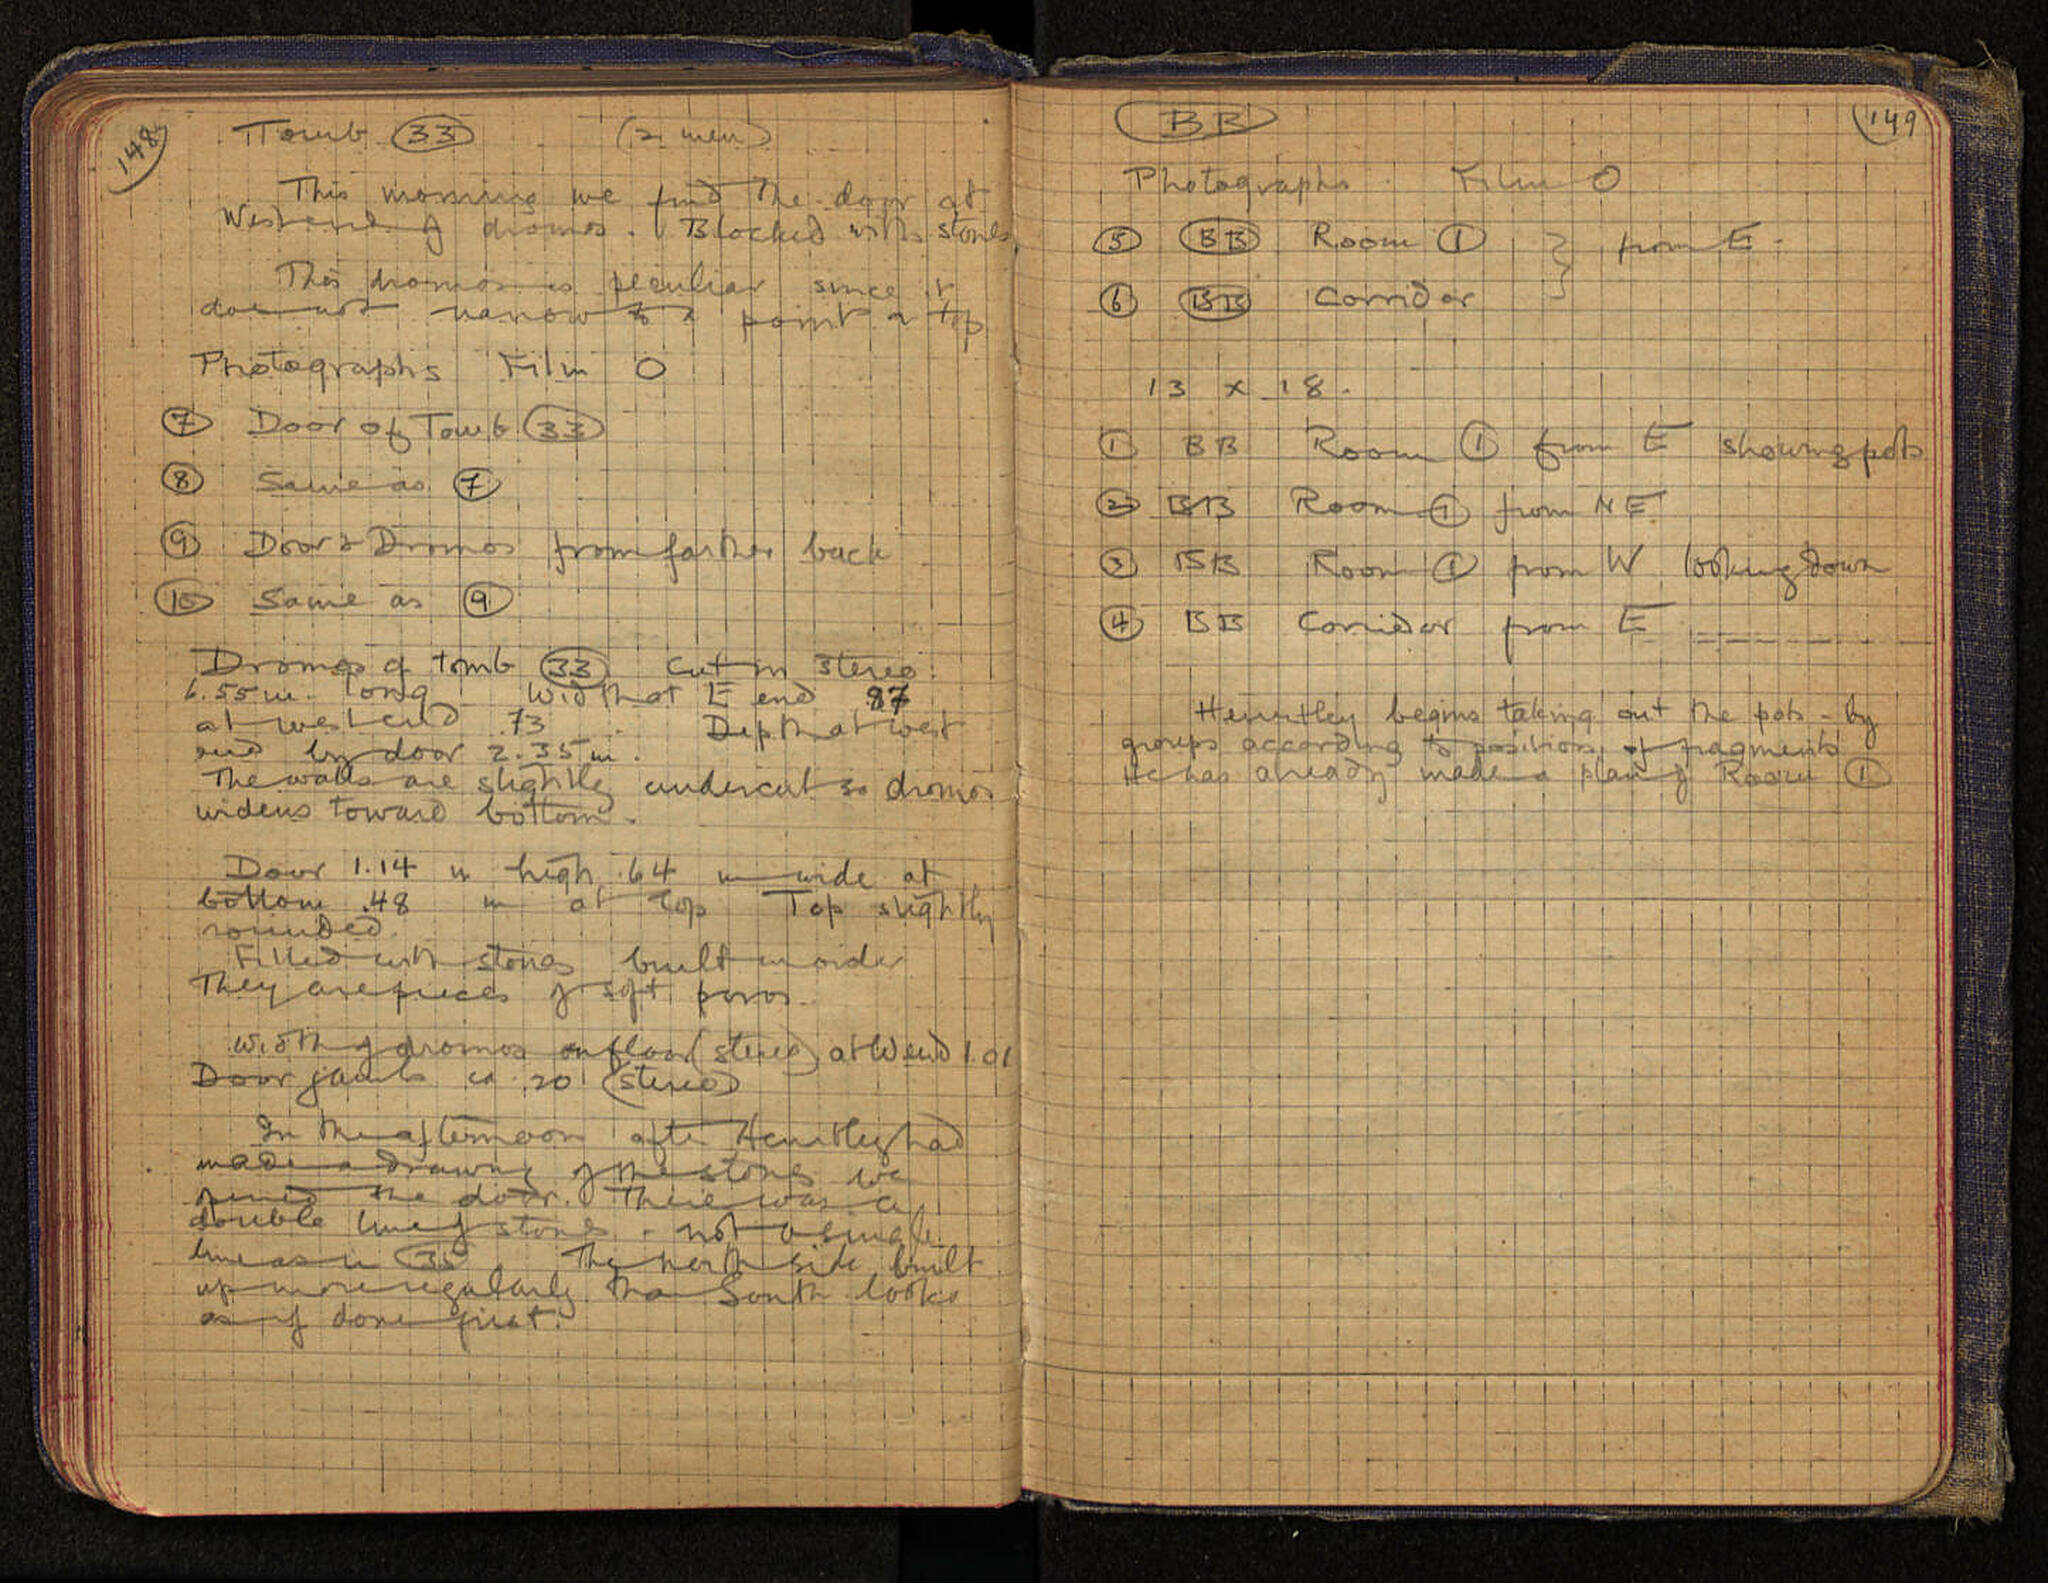 148
Tomb 33 (2 men)
This morning we find the door at
West end of dromos. Blocked with stones.
This dromos is peculiar since it
does not narrow to a point at top
Photographs Film O
7 Door of Tomb 33
8 Same as 7
9 Door & Dromos from farther back
10 Same as 9
Dromos of tomb 33 cut in stereo:
6.55 m. long Width at E end 87
at west end .73. Depth at west
end by door 2.35 m.
The walls are slightly undercut so dromos
widens toward bottom.
Door 1.14 m high .64 m wide at
bottom .48 m at top Top slightly
rounded.
Filled with stones built in order
They are pieces of soft poros.
Width of dromos on floor (stereo) at W end 1.01
Door jambs ca .20 (stereo)
In the afternoon after Heurtley had
made a drawing of the stones we
opened the door. There was a
double line of stones - not a single
line as in 35 The north side built
up more regularly than South looks
as if done first.
149
BB
Photographs. Film O
5 BB Room 1 } from E.
6 BB Corridor
13 x 18.
1 BB Room 1 from E showing pots
2 BB Room 1 from NE
3 BB Room 1 from W looking down
4 BB Corridor from E
Heurtley begins taking out the pots - by
groups according to positions of fragments
He has already made a plan of Room 1